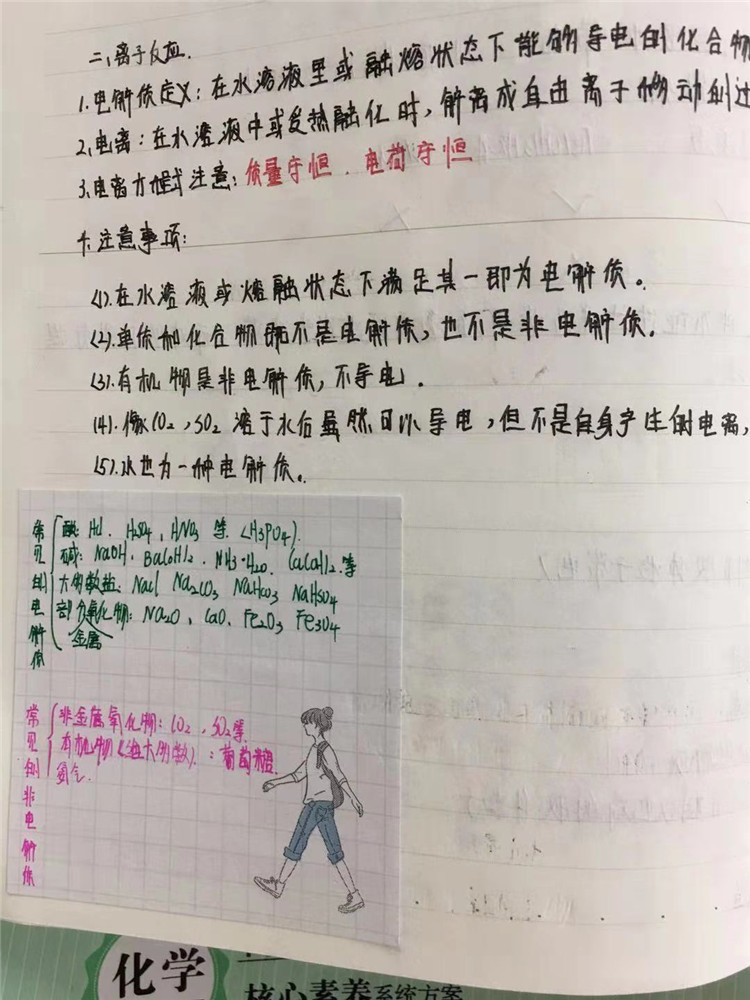 二、离子反应.
1.电解质定义：在水溶液里或融熔状态下能够导电的化合物
2.电离：在水溶液中或受热融化时，解离成自由离子移动的过
3.电离方程式注意：质量守恒．电荷守恒
4.注意事项：
(1).在水溶液或熔融状态下满足其一即为电解质。
(2).单质和化合物既不是电解质，也不是非电解质．
(3).有机物是非电解质，不导电．
(4).像CO₂，SO₂溶于水后虽然可以导电，但不是自身产生的电离，
(5).水也为一种电解质。
常见的电解质
酸：HCl．H₂SO₄，HNO₃等．(H₃PO₄)．
碱：NaOH．Ba(OH)₂．NH₃·H₂O．Ca(OH)₂．等
大多数盐：NaCl Na₂CO₃ NaHCO₃ NaHSO₄
部分氧化物：Na₂O，CaO．Fe₂O₃ Fe₃O₄
金属
常见的非电解质
非金属氧化物：CO₂，SO₂等．
有机物(绝大多数)．：葡萄糖．
氨气．
化学
核心素养系统方案